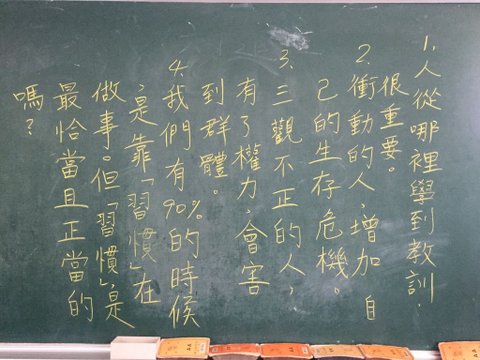 1.人從哪裡學到教訓,
很重要。
2.衝動的人,增加自
己的生存危機。
3.三觀不正的人,
有了權力,會害
到群體。
4.我們有90%的時候
,是靠「習慣」在
做事。但「習慣」,是
最恰當且正當的
嗎?